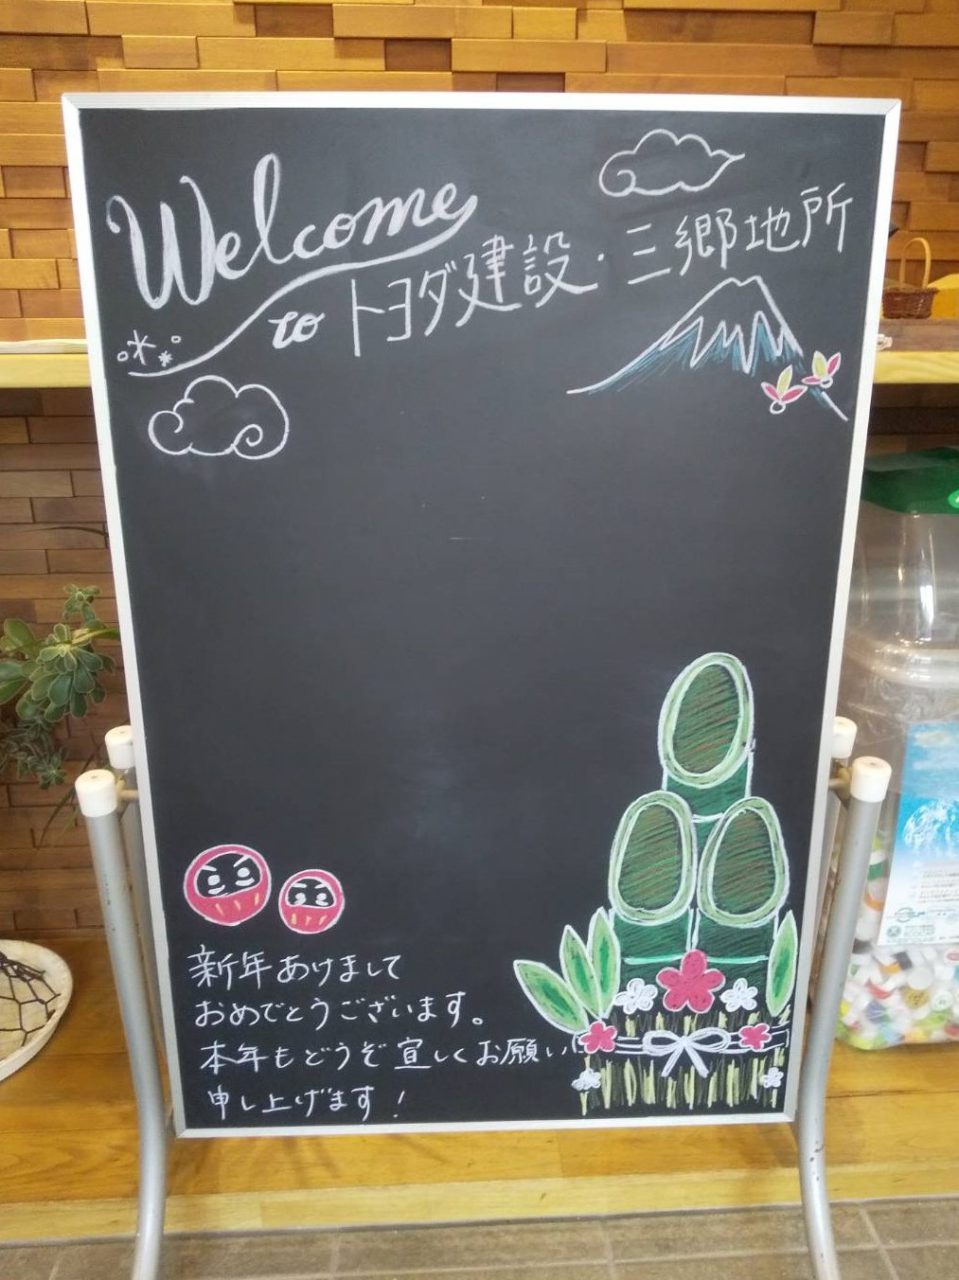 Welcome
to トヨダ建設・三郷地所
新年あけまして
おめでとうございます。
本年もどうぞ宜しくお願い
申し上げます!